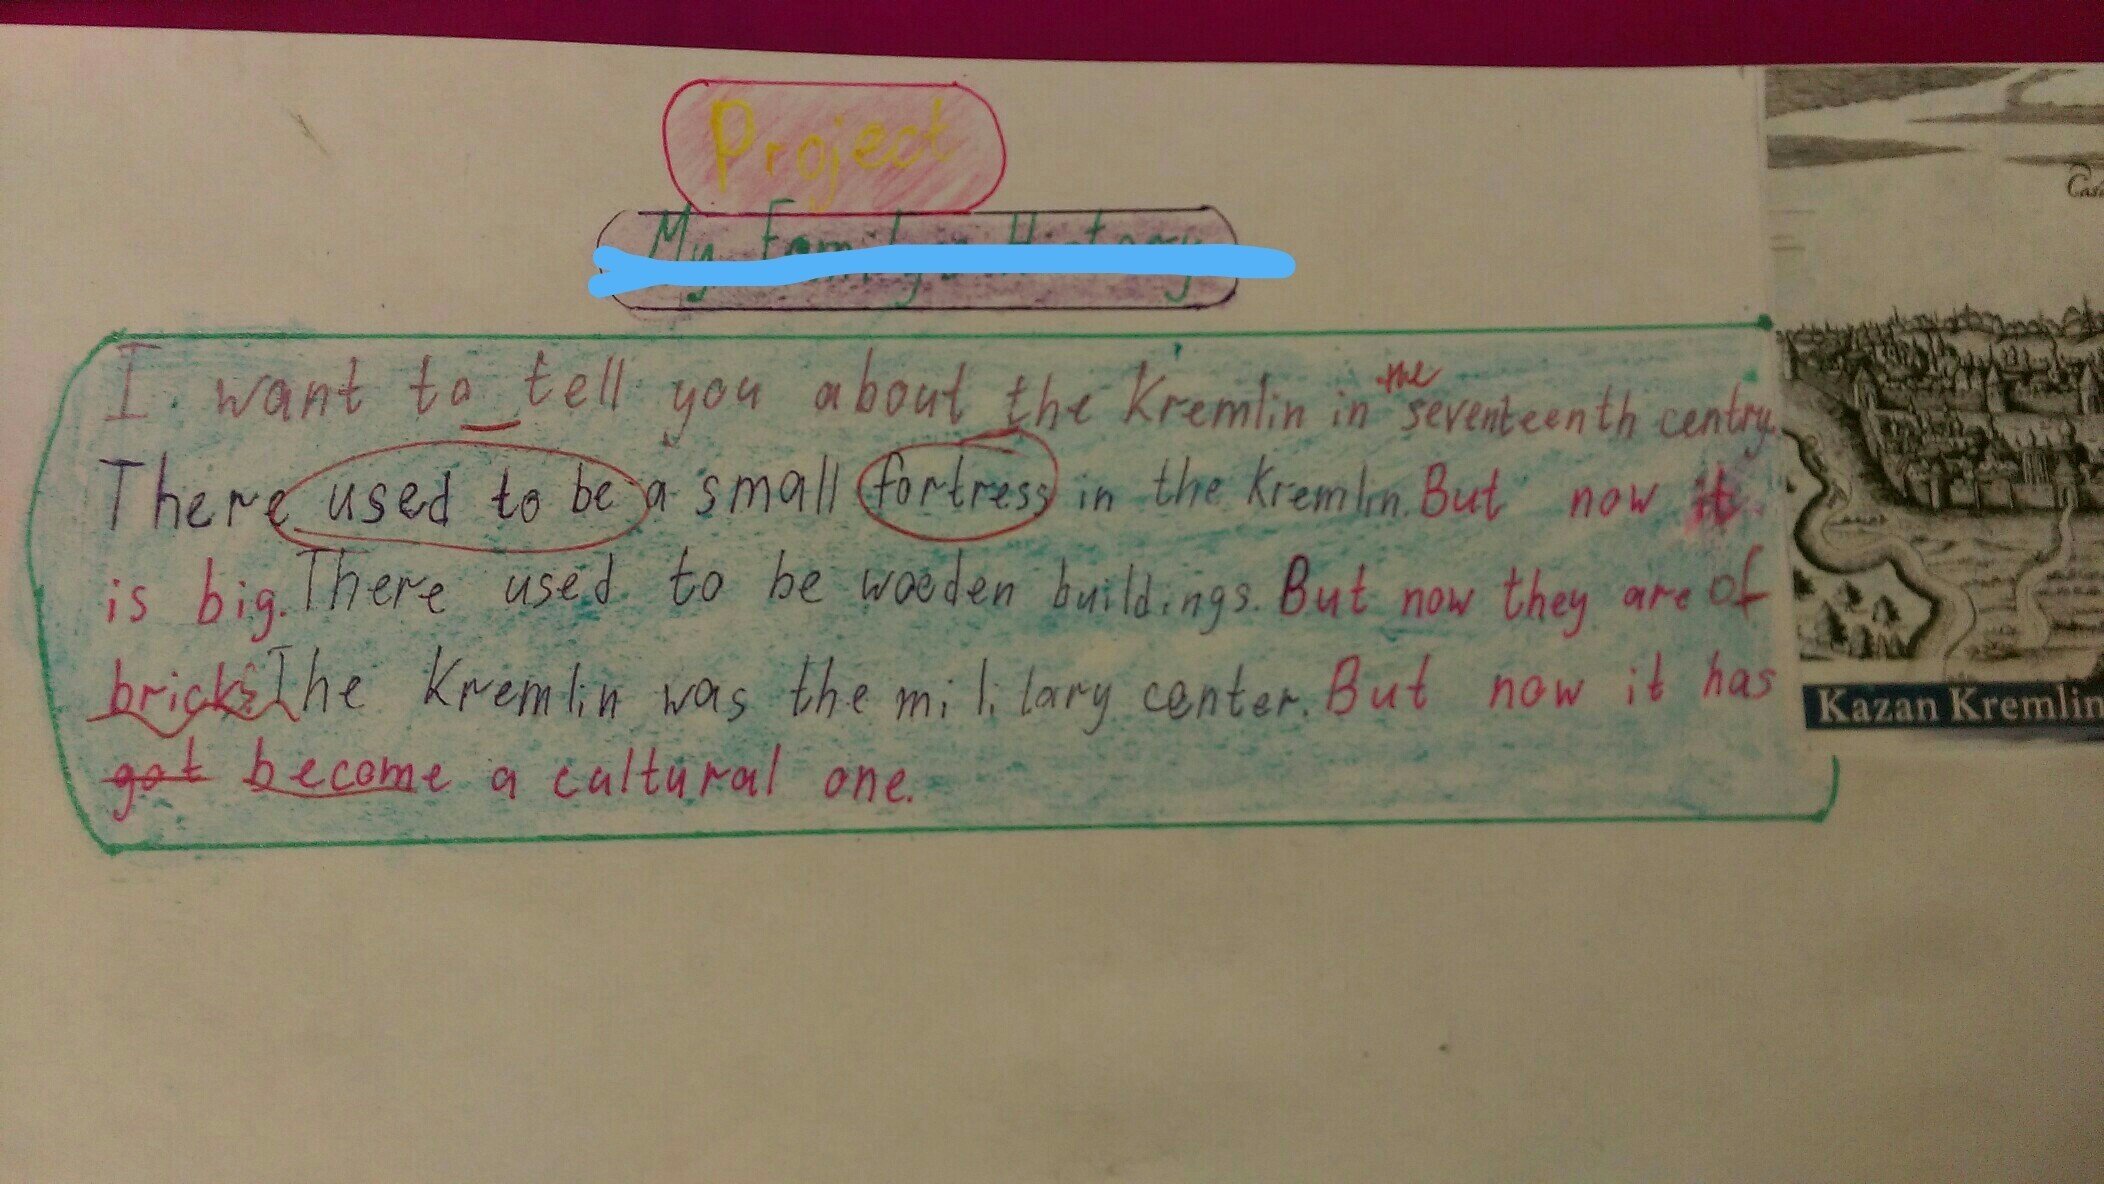 Project
My Family's History
I want to tell you about the Kremlin in the seventeenth centry.
There used to be a small fortress in the Kremlin. But now it
is big. There used to be woeden buildings. But now they are of
bricks. The Kremlin was the military center. But now it has
got become a caltural one.
Kazan Kremlin